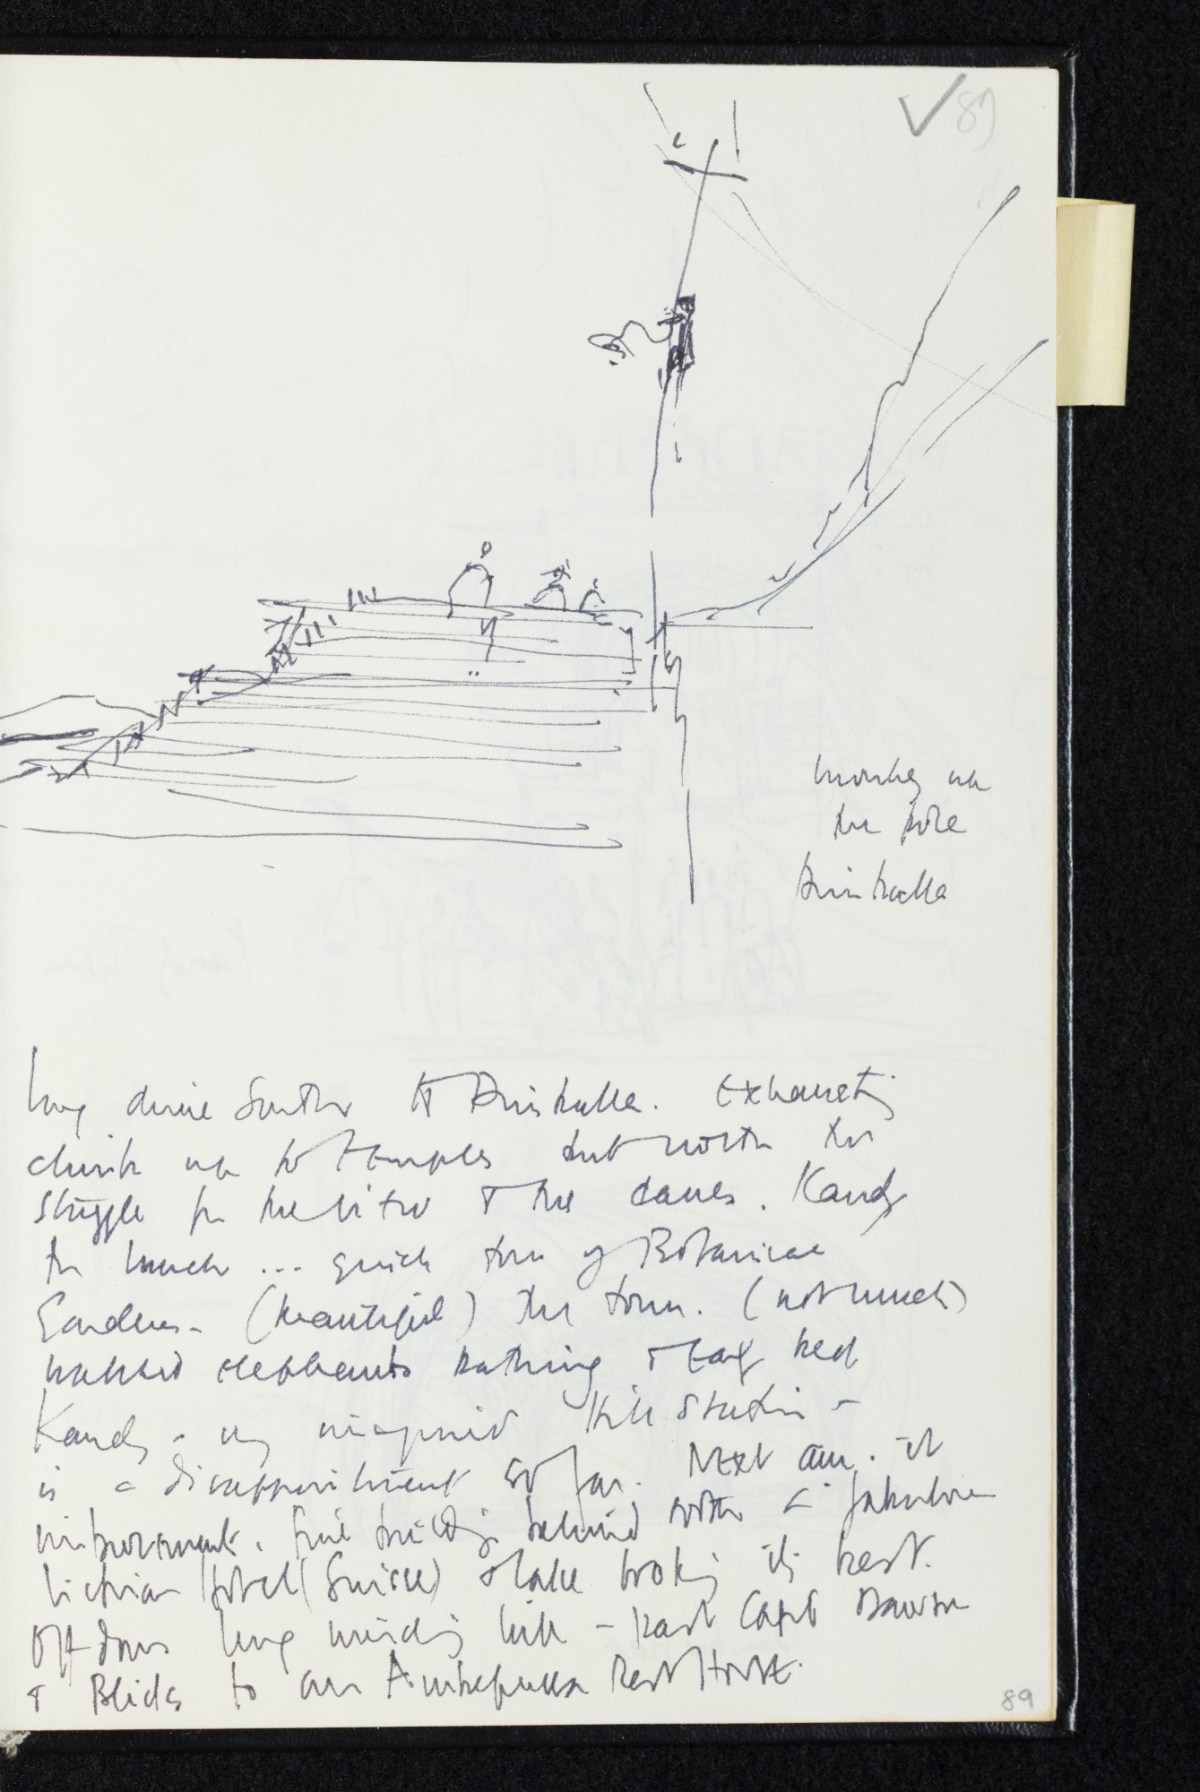 89
monkey up
the pole
Dambulla
Long drive South to Dambulla. Exhausting
climb up to temples but worth the
struggle for the view & the caves. Kandy
for lunch ... quick tour of Botanical
Gardens - (beautiful) the town. (not much)
watched elephants bathing & early bed
Kandy - my imagined Hill Station -
is a disappointment so far. Next am. it
improvement. fine building behind with a fabulous
Victorian Hotel (Suisse) & lake looking its best.
Off down long winding hill - past Capt Dawson
& to an Ambepussa Rest House.
89